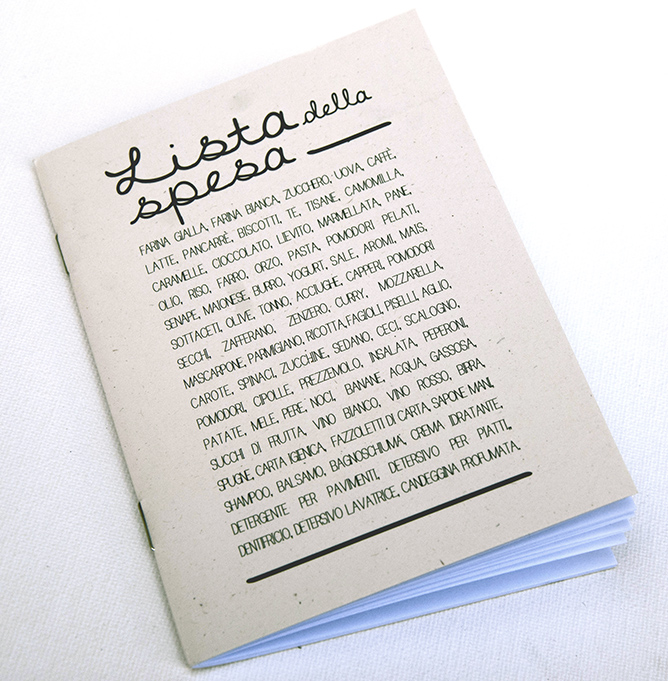 Lista della
spesa
FARINA GIALLA, FARINA BIANCA, ZUCCHERO, UOVA, CAFFÈ,
LATTE, PANCARRÈ, BISCOTTI, TE, TISANE, CAMOMILLA,
CARAMELLE, CIOCCOLATO, LIEVITO, MARMELLATA, PANE,
OLIO, RISO, FARRO, ORZO, PASTA, POMODORI PELATI,
SENAPE, MAIONESE, BURRO, YOGURT, SALE, AROMI, MAIS,
SOTTACETI, OLIVE, TONNO, ACCIUGHE, CAPPERI, POMODORI
SECCHI, ZAFFERANO, ZENZERO, CURRY, MOZZARELLA,
MASCARPONE, PARMIGIANO, RICOTTA, FAGIOLI, PISELLI, AGLIO,
CAROTE, SPINACI, ZUCCHINE, SEDANO, CECI, SCALOGNO,
POMODORI, CIPOLLE, PREZZEMOLO, INSALATA, PEPERONI,
PATATE, MELE, PERE, NOCI, BANANE, ACQUA, GASSOSA,
SUCCHI DI FRUTTA, VINO BIANCO, VINO ROSSO, BIRRA,
SPUGNE, CARTA IGIENICA, FAZZOLETTI DI CARTA, SAPONE MANI,
SHAMPOO, BALSAMO, BAGNOSCHIUMA, CREMA IDRATANTE,
DETERGENTE PER PAVIMENTI, DETERSIVO PER PIATTI,
DENTIFRICIO, DETERSIVO LAVATRICE, CANDEGGINA PROFUMATA.